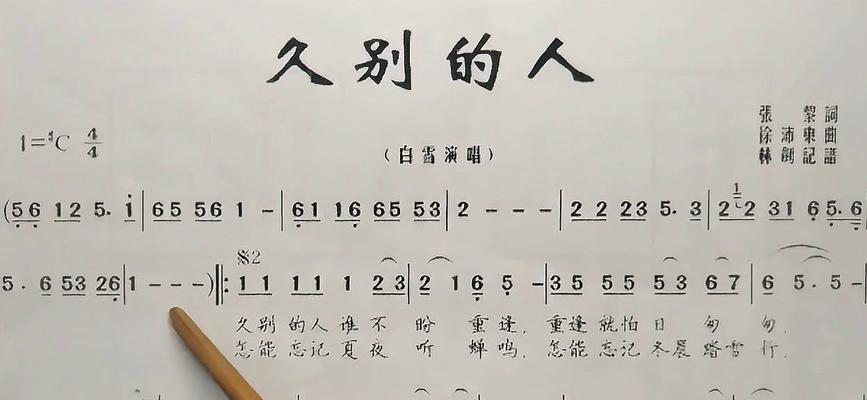 久别的人
張 黎 詞
1=♯C 4/4
徐 沛 東 曲
(白雪演唱)
(56 12 5· i | 65 56 1 - | 61 16 65 53 | 2 - - - | 2 2 23 5· 3 | 2 2 31 6 5·6
5· 6 53 26 | 1 - - -) ‖: 𝄋2 1 1 1 1 1 2 3 | 2 1 6 5 - | 3 5 5 5 5 3 6 7 | 6 5· 5 - |
久别 的人 谁 不 盼 重 逢, 重逢 就怕 日 匆 匆,
怎能 忘记 夏 夜 听 蝉 鸣, 怎能 忘记 冬晨 踏雪 行,